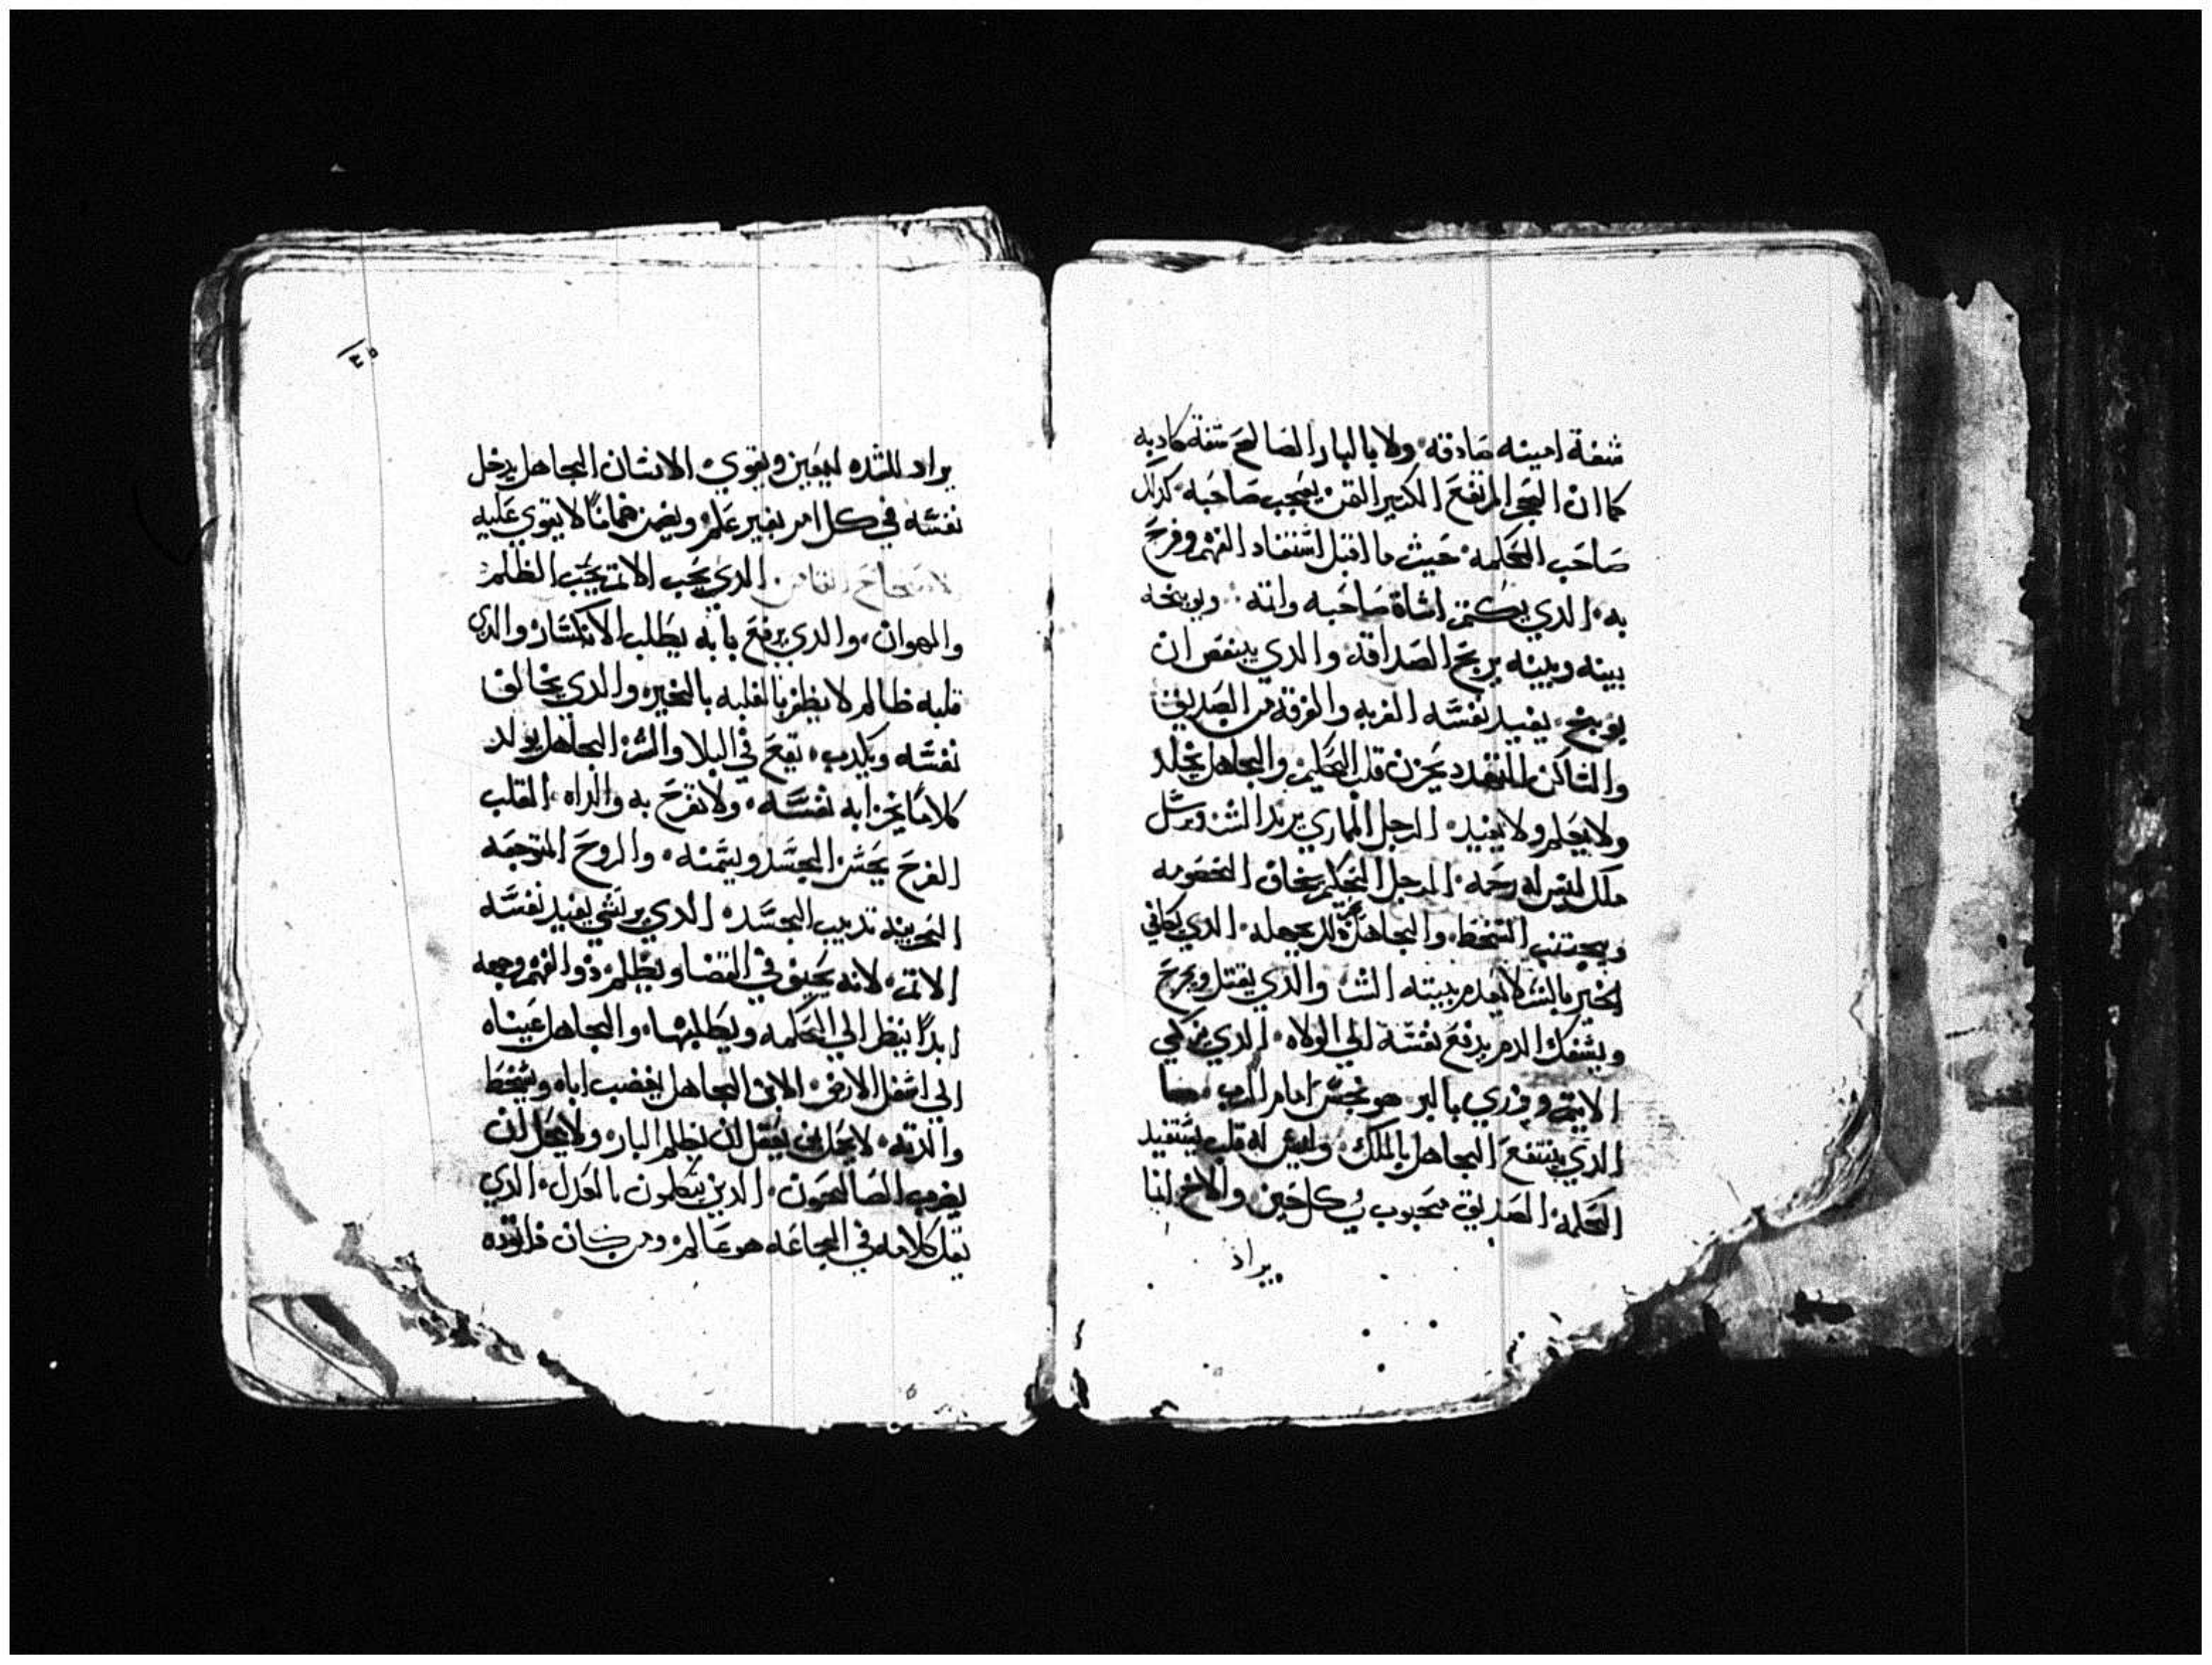 شفة امينه صادقه ولا بالبار الصالح شفة كادبه
كما ان الحجر المرتفع الكبير الثمن يعجب صاحبه كدلك
صاحب الحكمه حيث ما اقبل استفاد الفهم وفرح
به الدي يكتم اساة صاحبه واتمه ويوبخه
بينه وبينه يربح الصداقه والدي يبغض ان
يوبخ يفيد نفسه الغربه والفرقه من الصديق
والساكن المتهدد يحزن قلب الحكيم والجاهل يجلد
ولا يعلم ولا يفيد الرجل المماري يريد الشر ويرسل
ملك ليس له رحمه الرجل الحكيم يخاف الخصومه
ويجتنب السخط والجاهل جهله الدي يكافي
الخير بالشر لا يعدم بيته الشر والدي يقتل ويجرح
ويسفك الدم يدفع نفسه الي الولاه الدي يزكي
الاتم ويزري بالبر هو نجس امام الرب
الدي ينتفع الجاهل بالملك وليس له قلب يستفيد
الحكمه الصديق محبوب في كل حين والاخ انما
يراد
٣٥
يراد للشده ليعين ويقوي الانسان الجاهل يدخل
نفسه في كل امر بغير علم ويضمن ضمانا لا يقوي عليه
الدي يحب الاتم يحب الظلم
والهوان والدي يرفع بابه يطلب الانكسار والدي
قلبه ظالم لا يظفر بالغلبه بالخير والدي يخالف
نفسه ويكدب يقع في البلا والشر الجاهل يولد
كلاما يخزا به نفسه ولا تفرح به والداه القلب
الفرح يحسن الجسد ويسمنه والروح المتوجعه
الحزينه تديب الجسد الدي يرتشي يفيد نفسه
الاتم لانه يحيف في القضا ويظلم دو الفهم وجهه
ابدا ينظر الي الحكمه ويطلبها والجاهل عيناه
الي اسفل الارض الابن الجاهل يغضب اباه ويسخط
والدته لا يحل لمن يعقل ان يظلم البار ولا يحل ان
يضرب الصالحون الدين يتكلمون بالعدل الدي
يقل كلامه في المجاعه هو عالم ومن كان فراتوده